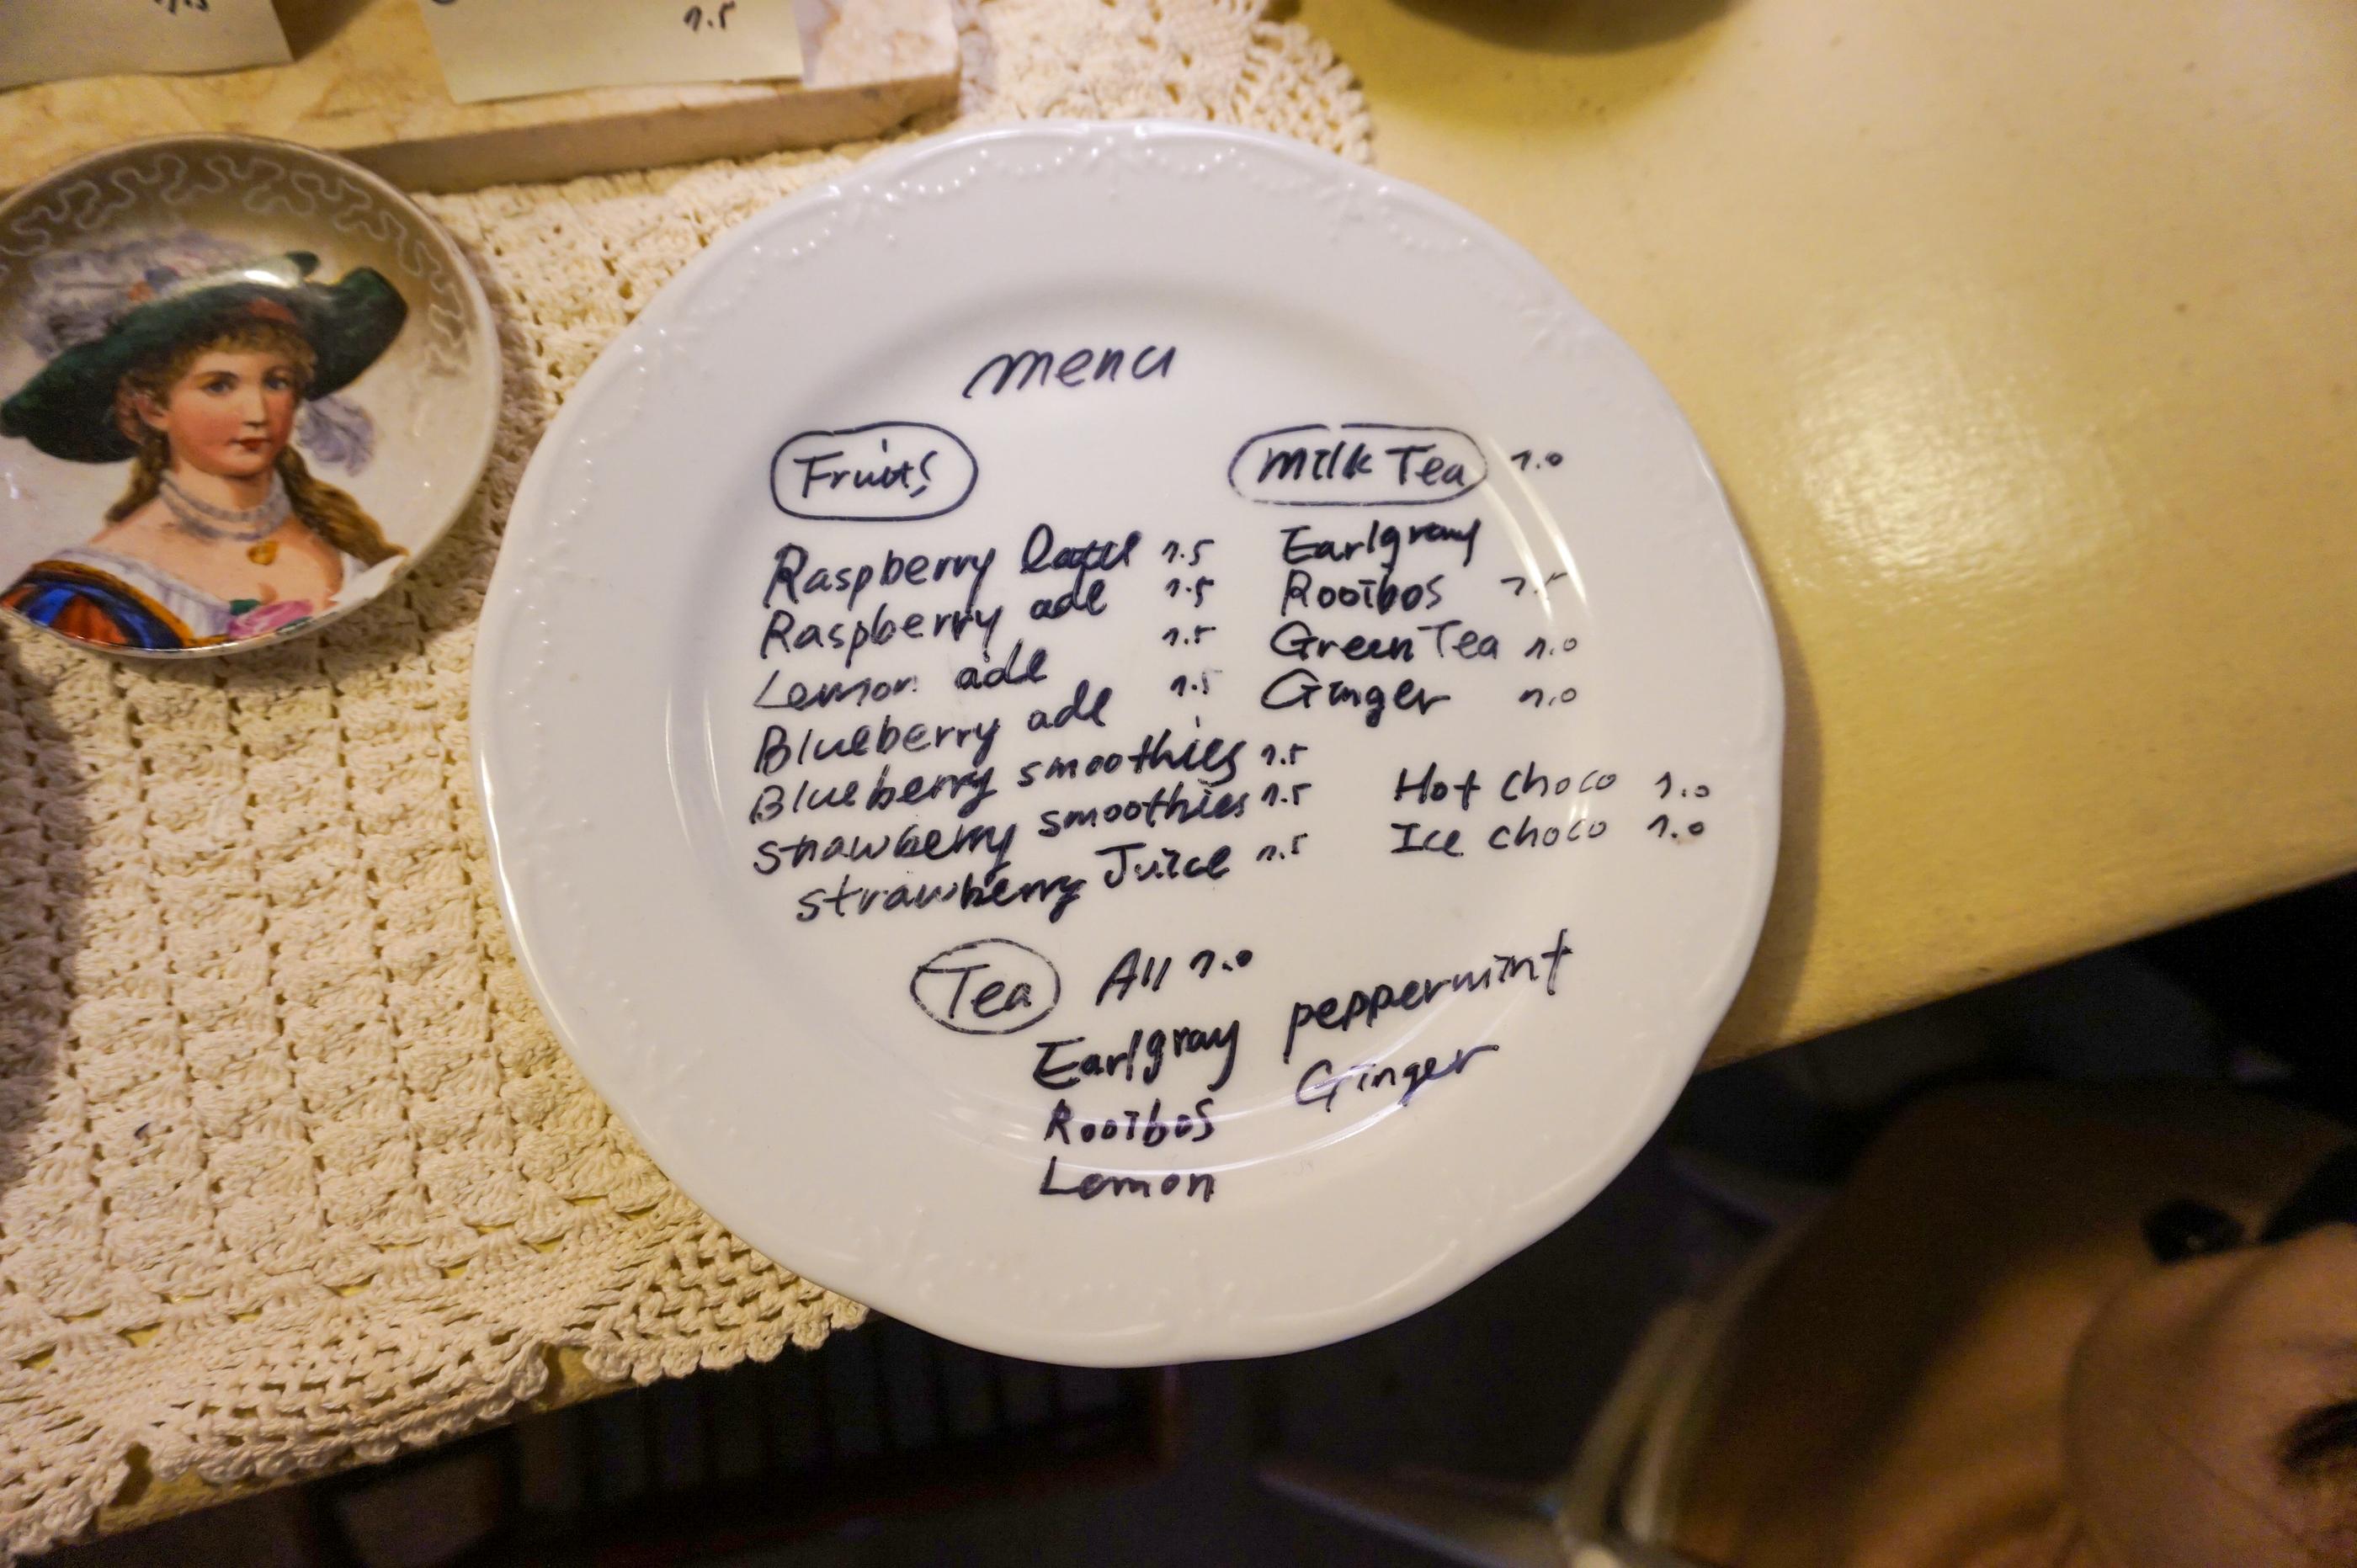 7.5
menu
Fruits
Raspberry latte 7.5
Raspberry ade 7.5
Lemon ade 7.5
Blueberry ade 7.5
Blueberry smoothies 7.5
strawberry smoothies 7.5
strawberry Juice 7.5
Milk Tea 7.0
Earlgray
Rooibos 7.5
Green Tea 7.0
Ginger 7.0
Hot choco 7.0
Ice choco 7.0
Tea All 7.0
Earlgray
Rooibos
Lemon
peppermint
Ginger